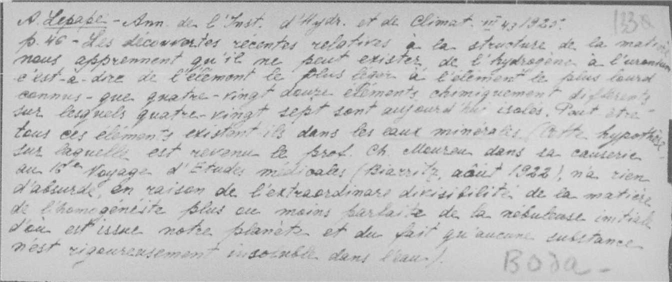 A. Lepape - Ann. de l'Inst. d'Hydr. et de Climat. nº 4, 1925.
p. 46 - Les découvertes récentes relatives à la structure de la matière
nous apprennent qu'il ne peut exister, de l'hydrogène à l'uranium
c'est-à-dire de l'élément le plus léger à l'élément le plus lourd
connus - que quatre-vingt douze éléments chimiquement différents
sur lesquels quatre-vingt sept sont aujourd'hui isolés. Peut être
tous ces éléments existent ils dans les eaux minérales (cette hypothèse
sur laquelle est revenu le prof. Ch. Moureu dans sa causerie
au Voyage d'Études médicales (Biarritz, août 1922), n'a rien
d'absurde, en raison de l'extraordinaire divisibilité de la matière
de l'homogénéité plus ou moins parfaite de la nébuleuse initiale
d'où est issue notre planète et du fait qu'aucune substance
n'est rigoureusement insoluble dans l'eau).